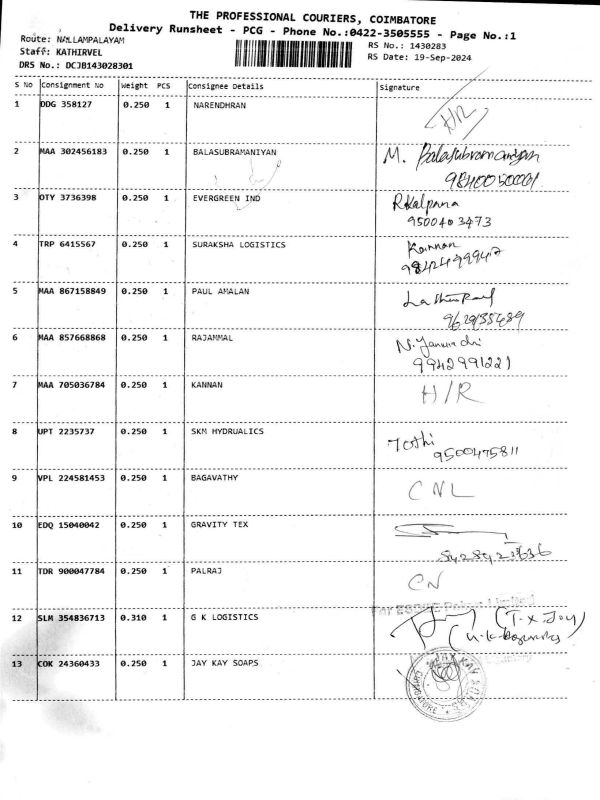 THE PROFESSIONAL COURIERS, COIMBATORE
Delivery Runsheet - PCG - Phone No.:0422-3505555 - Page No.:1
Route: NALLAMPALAYAM
RS No.: 1430283
Staff: KATHIRVEL
RS Date: 19-Sep-2024
DRS No.: DCJB143028301
S No Consignment No Weight PCS Consignee Details Signature
1 DDG 358127 0.250 1 NARENDHRAN H/R
2 MAA 302456183 0.250 1 BALASUBRAMANIYAN M. Balasubramaniyan
3 OTY 3736398 0.250 1 EVERGREEN IND R Kalpana
9500403473
4 TRP 6415567 0.250 1 SURAKSHA LOGISTICS Kannan
5 MAA 867158849 0.250 1 PAUL AMALAN
6 MAA 857668868 0.250 1 RAJAMMAL
9942991221
7 MAA 705036784 0.250 1 KANNAN H/R
8 UPT 2235737 0.250 1 SKM HYDRUALICS
9500475811
9 VPL 224581453 0.250 1 BAGAVATHY CNL
10 EDQ 15040042 0.250 1 GRAVITY TEX
11 TDR 900047784 0.250 1 PALRAJ CN
12 SLM 354836713 0.310 1 G K LOGISTICS
13 COK 24360433 0.250 1 JAY KAY SOAPS JAY KAY SOAPS COIMBATORE